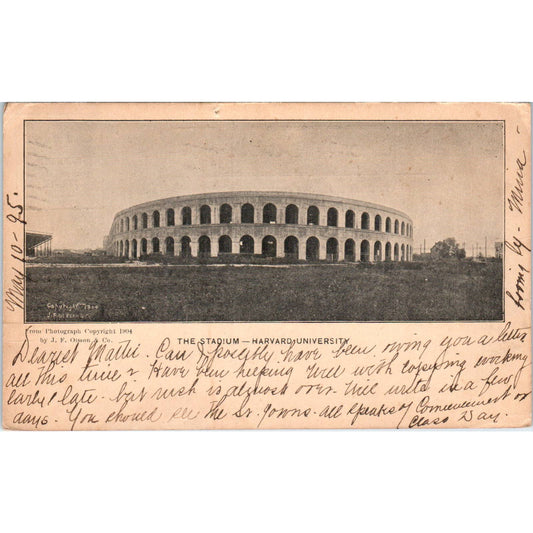 May 10 - 95.
Lovingly - Mina -
Copyright 1904
From Photograph Copyright 1904
by J. F. Olsson & Co.
THE STADIUM — HARVARD UNIVERSITY
Dearest Mattie. Can I possibly have been owing you a letter
all this time & Have been keeping Will with copying working
early & late - but rush is almost over. Will write in a few
days. You should see the Sr. gowns - all speaks of Commencement or
Class Day.